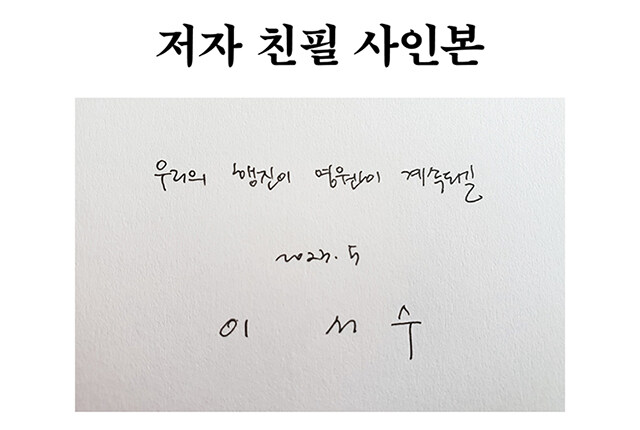 저자 친필 사인본
우리의 행진이 영원히 계속되길
2023. 5
이 서 수